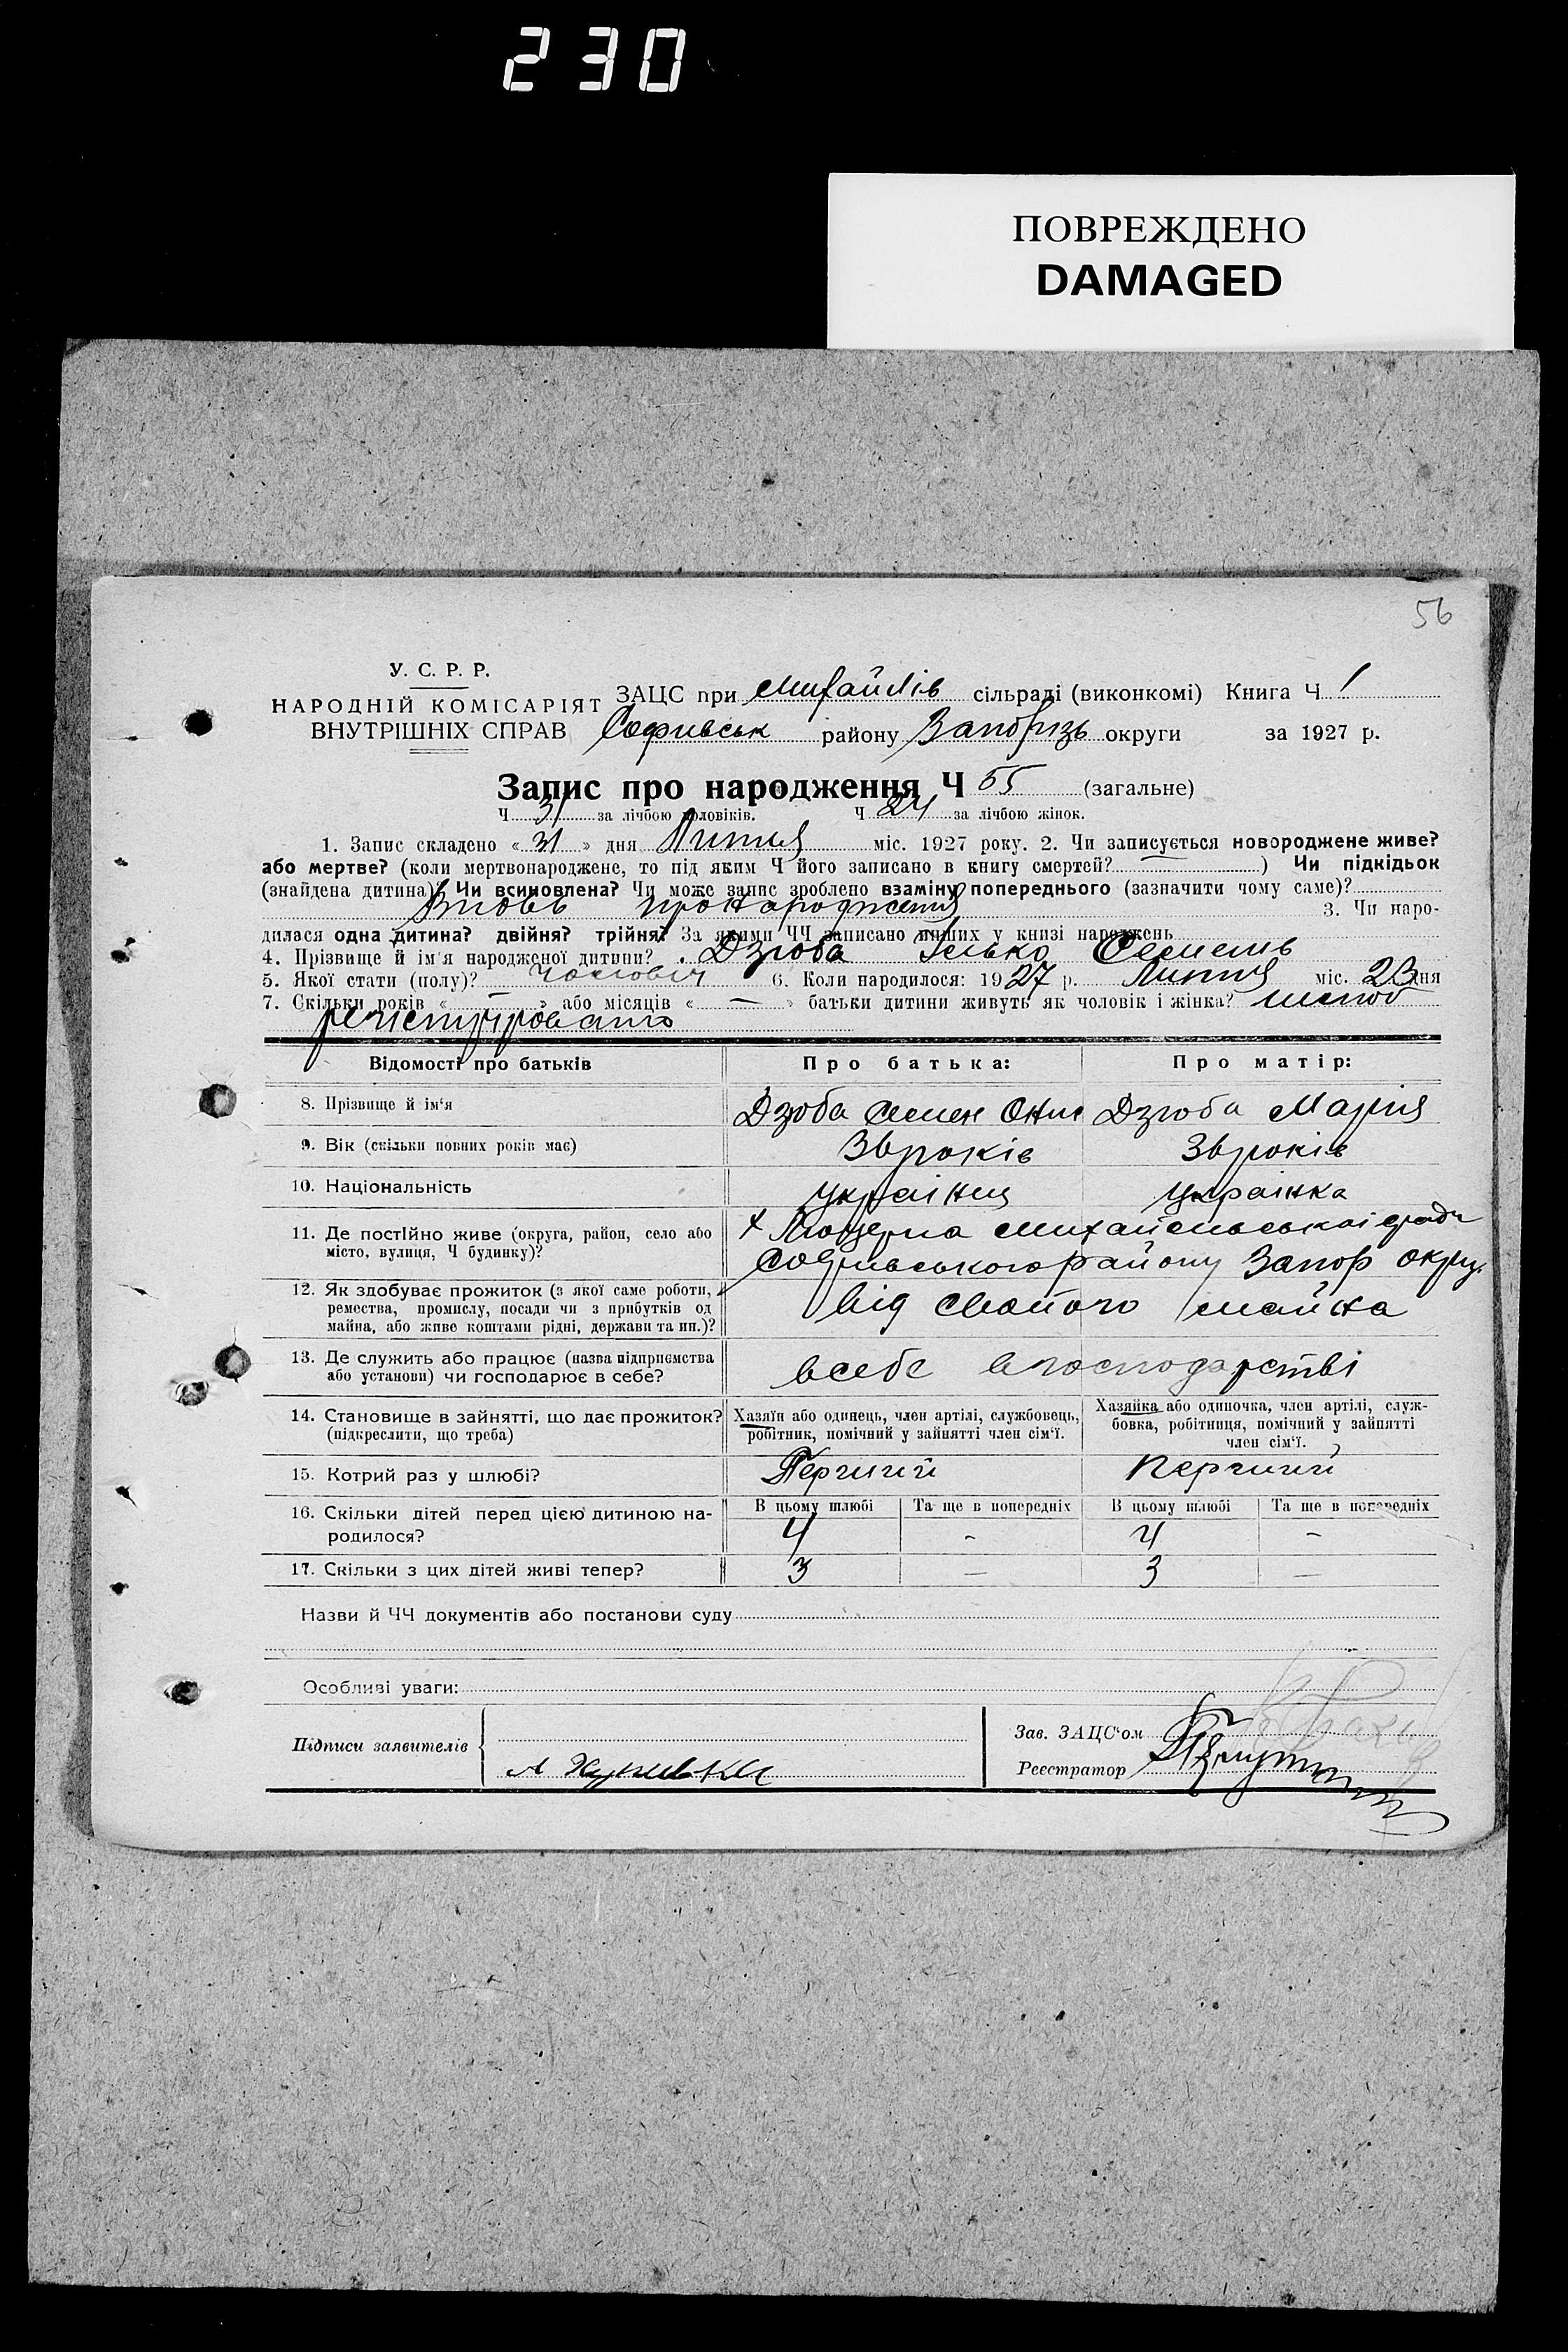 230
ПОВРЕЖДЕНО
DAMAGED
56
У. С. Р. Р.
НАРОДНІЙ КОМІСАРІЯТ
ВНУТРІШНІХ СПРАВ
ЗАЦС при Михайлів сільраді (виконкомі) Книга Ч 1
Софивськ району Запоріз округи за 1927 р.
Запис про народження Ч 55 (загальне)
Ч 31 за лічбою чоловіків. Ч 24 за лічбою жінок.
1. Запис складено « 31 » дня Липня міс. 1927 року. 2. Чи записується новороджене живе?
або мертве? (коли мертвонароджене, то під яким Ч його записано в книгу смертей? — ) Чи підкідьок
(знайдена дитина)? Чи всиновлена? Чи може запис зроблено взаміну попереднього (зазначити чому саме)?
Вновь 3. Чи наро-
дилася одна дитина? двійня? трійня? За якими ЧЧ записано инших у книзі народжень
4. Прізвище й ім'я народженої дитини? Дзюба
5. Якої стати (полу)? чоловіч 6. Коли народилося: 1927 р. Липня міс. 23 дня
7. Скільки років « — » або місяців « — » батьки дитини живуть як чоловік і жінка? шлюб
Відомості про батьків Про батька: Про матір:
8. Прізвище й ім'я Дзюба Семен Дзюба Марія
9. Вік (скільки повних років має) 36 років 36 років
10. Національність українця українка
11. Де постійно живе (округа, район, село або
місто, вулиця, Ч будинку)?
х Люцерна
района Запор окру.
12. Як здобуває прожиток (з якої саме роботи,
ремества, промислу, посади чи з прибутків од
майна, або живе коштами рідні, держави та ин.)?
від свойого майна
13. Де служить або працює (назва підприємства
або установи) чи господарює в себе?
всебе вгосподарстві
14. Становище в зайнятті, що дає прожиток?
(підкреслити, що треба)
Хазяїн або одинець, член артілі, службовець,
робітник, помічний у зайнятті член сім'ї.
Хазяйка або одиночка, член артілі, служ-
бовка, робітниця, помічний у зайнятті
член сім'ї.
15. Котрий раз у шлюбі? Перший Перший
16. Скільки дітей перед цією дитиною на-
родилося?
В цьому шлюбі Та ще в попередніх В цьому шлюбі Та ще в попередніх
4 - 4 -
17. Скільки з цих дітей живі тепер? 3 — 3 —
Назви й ЧЧ документів або постанови суду
Особливі уваги:
Підписи заявителів
Зав. ЗАЦС'ом
Реєстратор